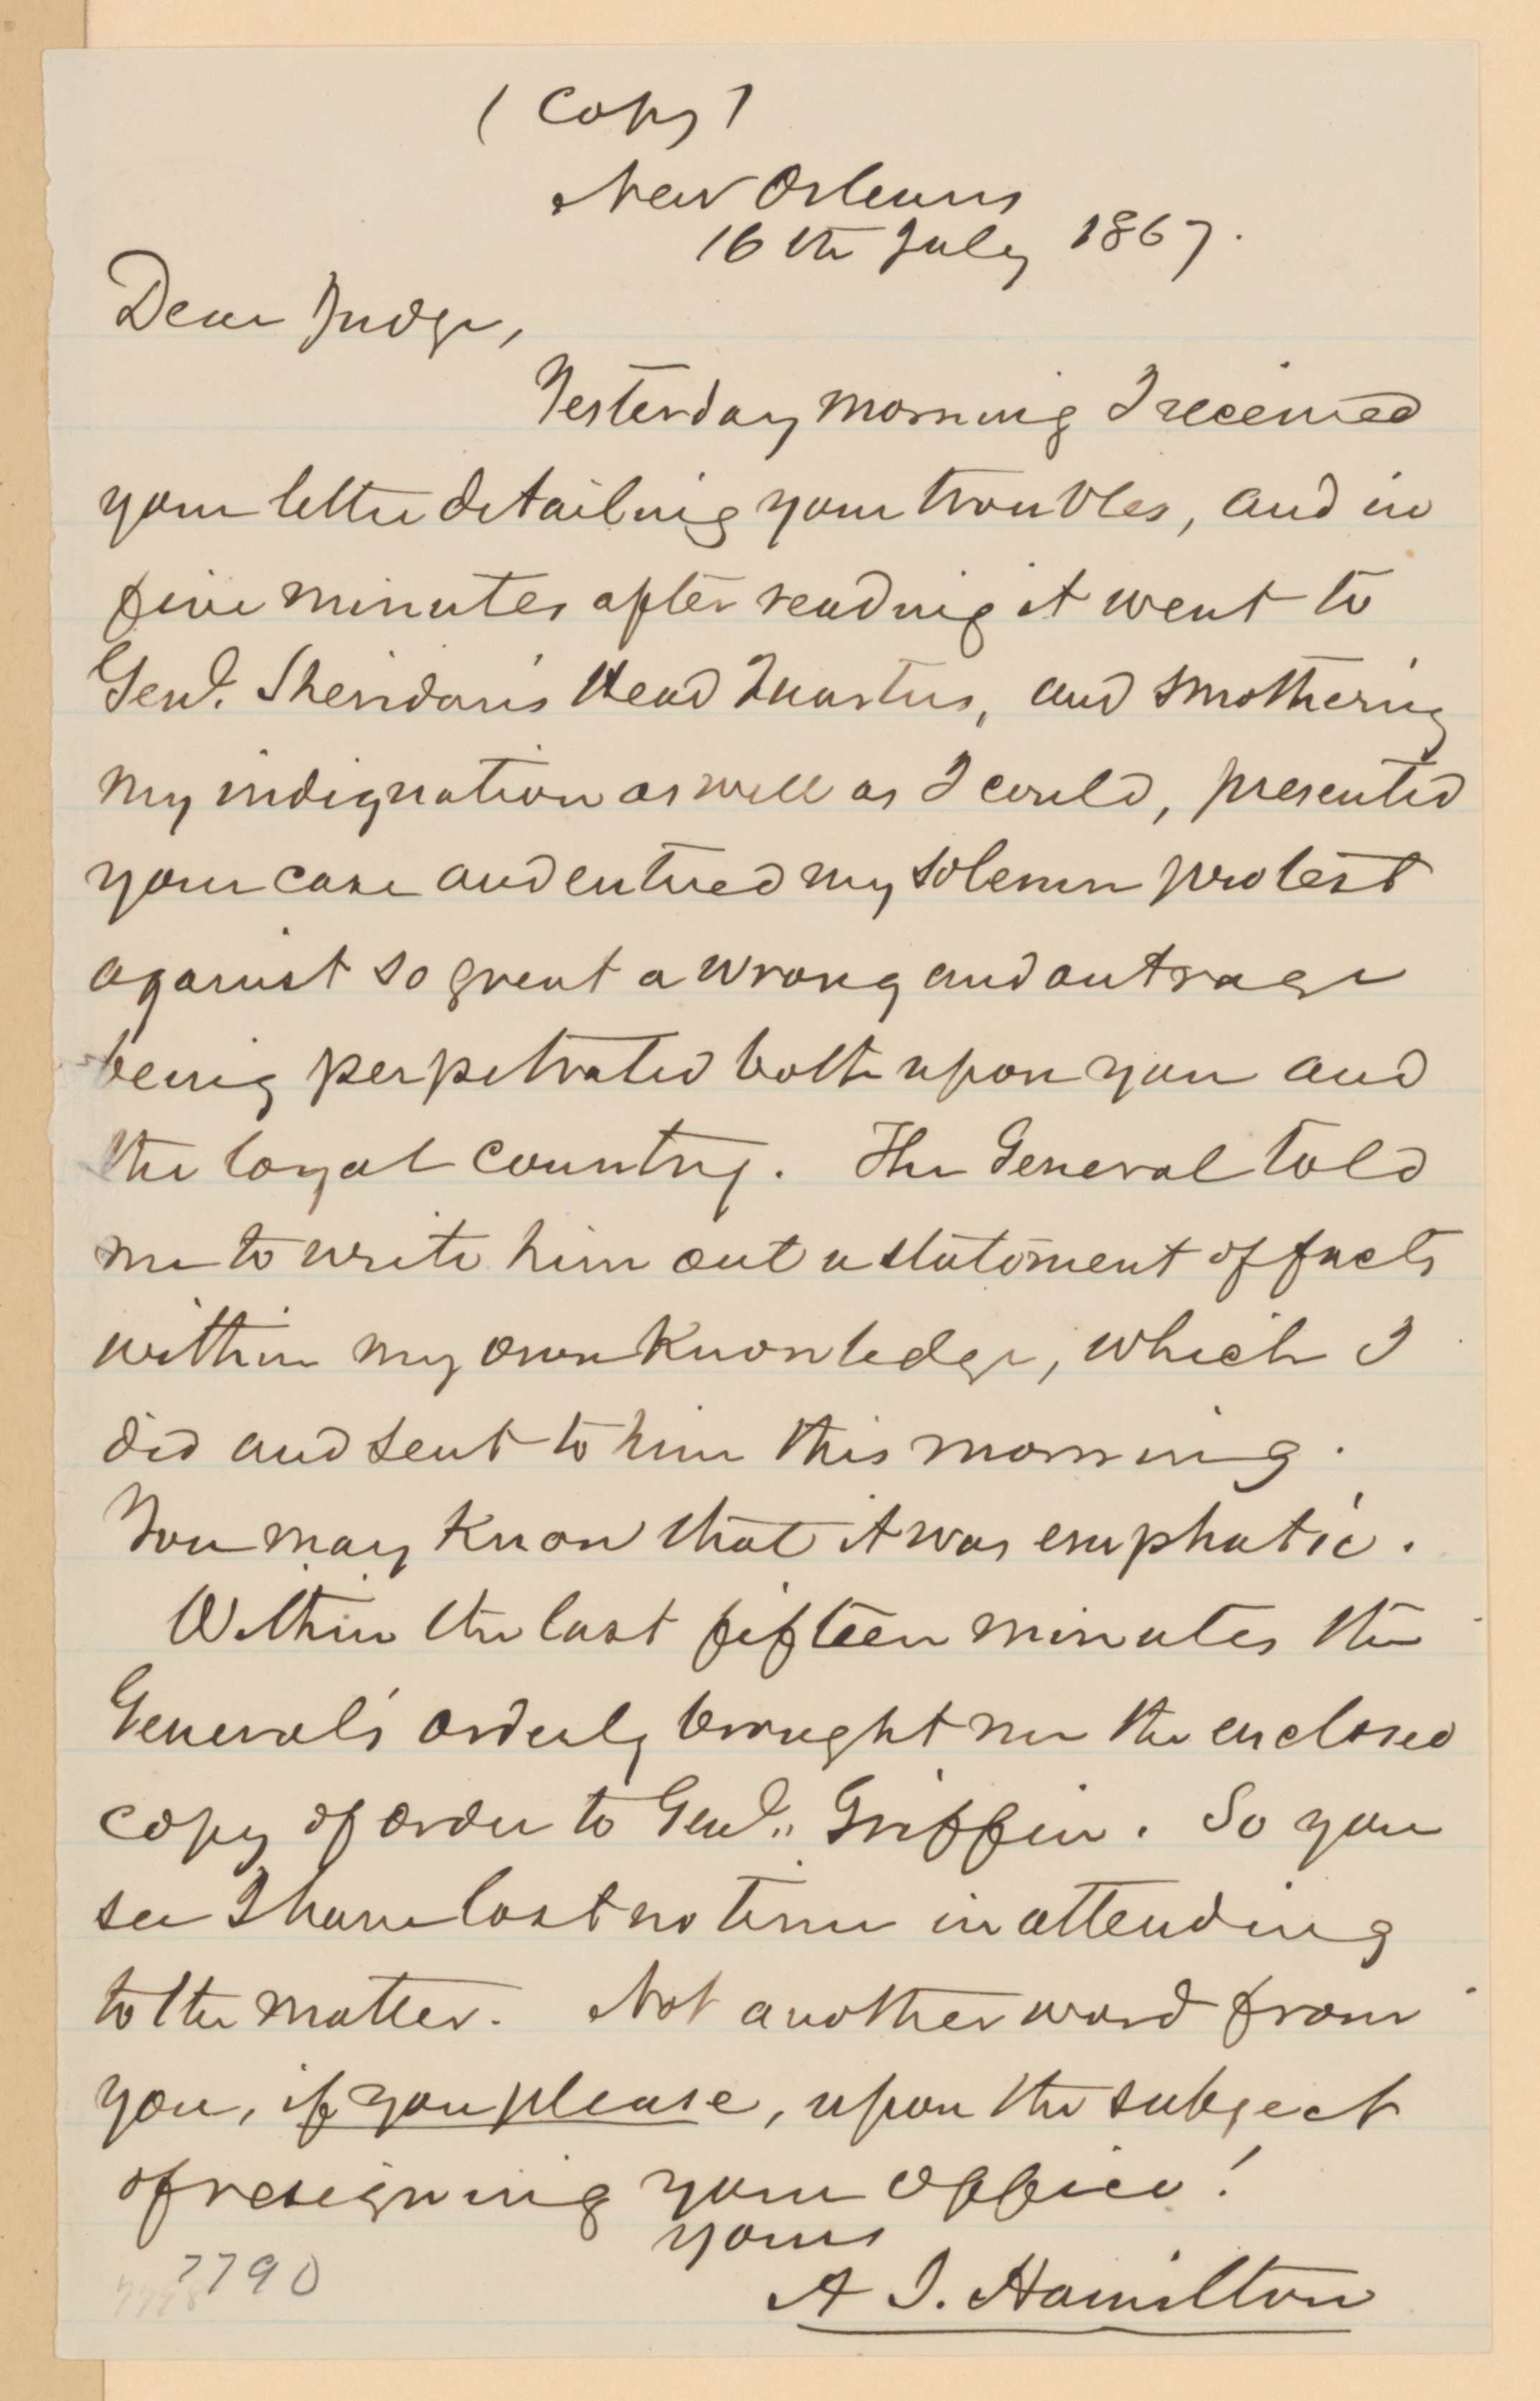 (Copy)
New Orleans
16th July 1867.
Dear Judge,
Yesterday morning I received
your letter detailing your troubles, and in
five minutes after reading it went to
Genl. Sheridan's Head Quarters, and smothering
my indignation as well as I could, presented
your case and entered my solemn protest
against so great a wrong and outrage
being perpetrated both upon you and
the loyal country. The General told
me to write him out a statement of facts
within my own knowledge, which I
did and sent to him this morning.
You may know that it was emphatic.
Within the last fifteen minutes the
General's orderly brought me the enclosed
copy of order to Genl. Griffin. So you
see I have lost no time in attending
to the matter. Not another word from
you, if you please, upon the subject
of resigning your office!
yours
7790
A J. Hamilton